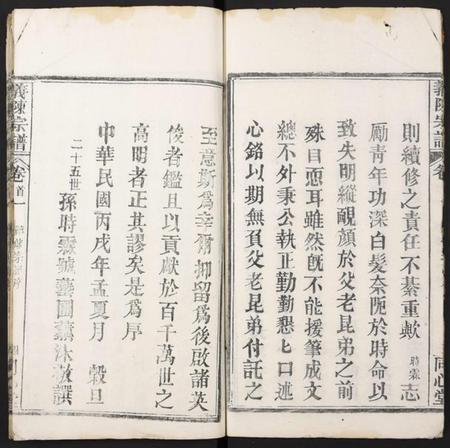 義陳宗譜 卷
同心堂
則續修之責任不綦重歟 時霖 志
勵青年功深白髮奈阨於時命以
致失明縱靦顏於父老昆弟之前
殊目恧耳雖然旣不能援筆成文
總不外秉公執正勤勤懇匕口述
心銘以期無負父老昆弟付託之
至意斯爲幸爾抑留爲後啟諸英
俊者鑑且以貢獻於百千萬世之
高明者正其謬矣是爲序
中華民國丙戌年孟夏月 穀旦
二十五世 孫時霖號藝圃薰沐敬譔
義陳宗譜 卷首一